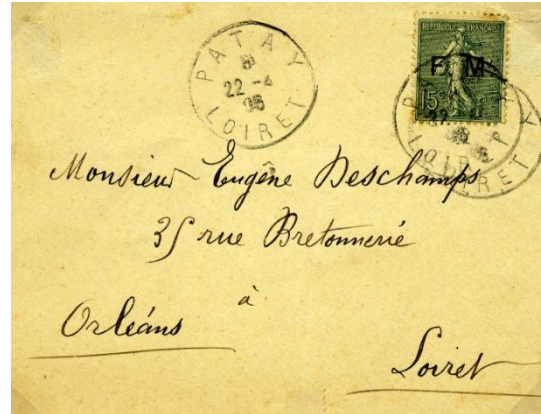 PATAY
22 - 4
LOIRET
REPUBLIQUE FRANÇAISE
F M
15c
LOIRET
Monsieur Eugène Deschamps
35 rue Bretonnerie
à
Orléans
Loiret